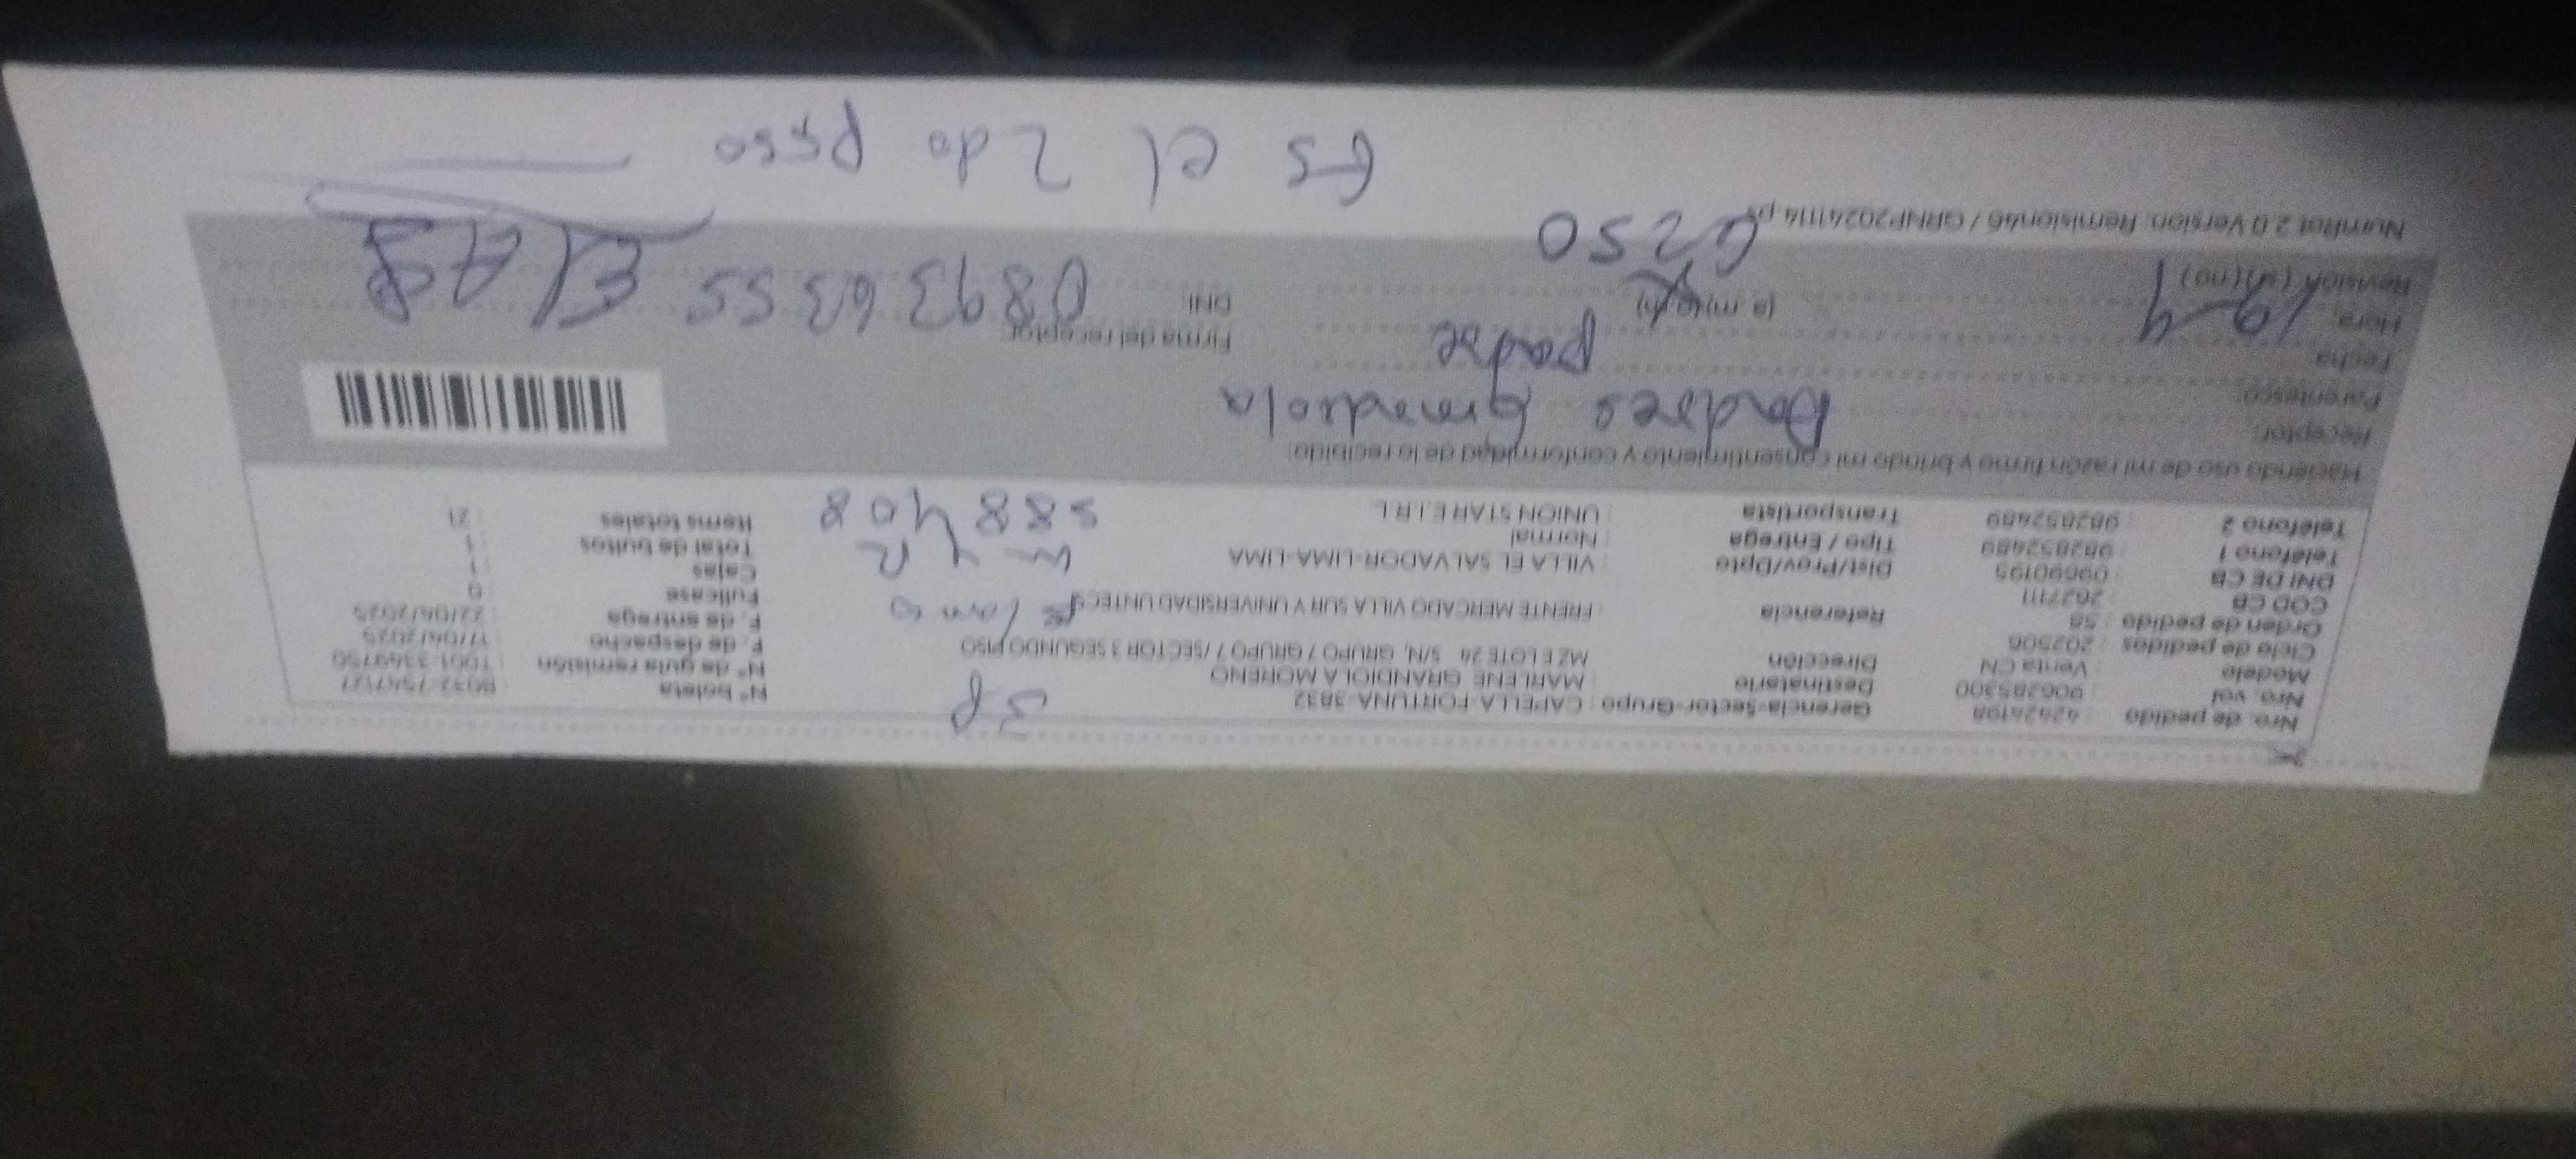 Nro. de pedido : 42424198
Nro. vol : 906285300
Modelo : Venta CN
Ciclo de pedidos : 202506
Orden de pedido : 58
COD CB : 2627111
DNI DE CB : 09690195
Teléfono 1 : 982852489
Teléfono 2 : 982852489
Gerencia-Sector-Grupo : CAPELLA-FORTUNA-3B32
Destinatario : MARLENE GRANDIOLA MORENO
Dirección : MZ E LOTE 24 S/N, GRUPO 7 GRUPO 7 /SECTOR 3 SEGUNDO PISO
Referencia : FRENTE MERCADO VILLA SUR Y UNIVERSIDAD UNTECS
Dist/Prov/Dpto : VILLA EL SALVADOR-LIMA-LIMA
Tipo / Entrega : Normal
Transportista : UNION STAR E.I.R.L.
3P
588408
N° boleta
N° de guía remisión : T001-3369750
F. de despacho : 17/04/2025
F. de entrega : 22/04/2025
Fullcase : 0
Cajas : 1
Total de bultos : 1
Items totales : 21
Haciendo uso de mi razón firmo y brindo mi consentimiento y conformidad de lo recibido:
Receptor:
Parentesco: padre
Fecha
Hora: 19-4
(a.m)(p.m)
Revisión (si) (no)
6250
Firma del receptor:
DNI: 08936355
NumRot 2.0 Version: Remision46 / GRNP20241114.ps
Es el 2do piso